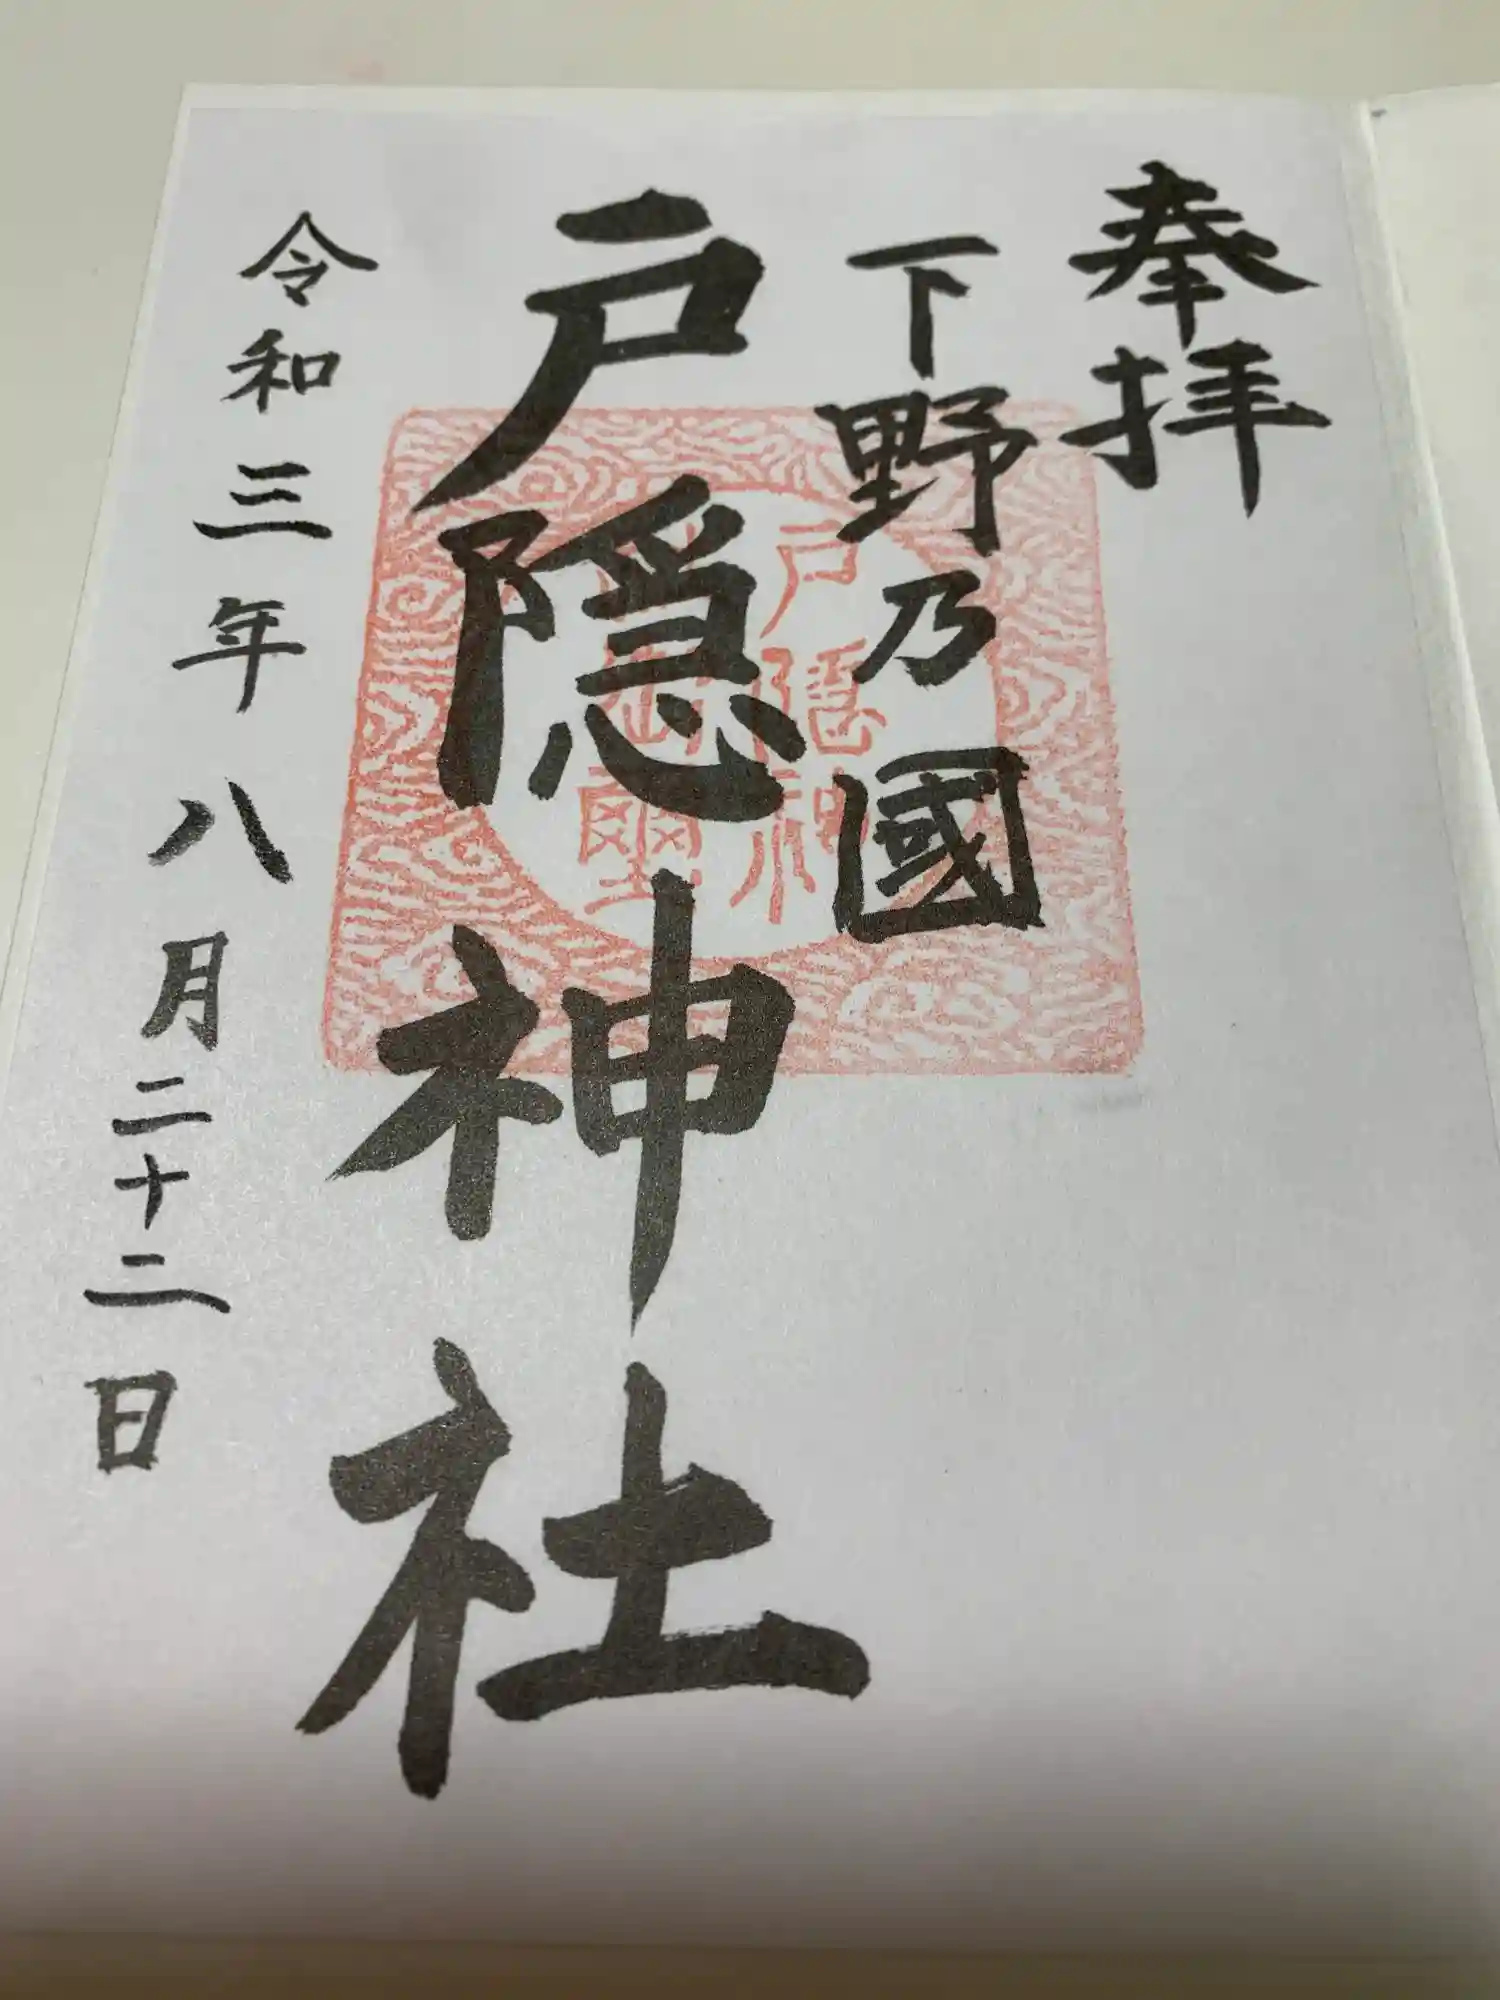 奉拝
下野乃國
戸隠神社
令和三年八月二十二日
戸隠神
璽